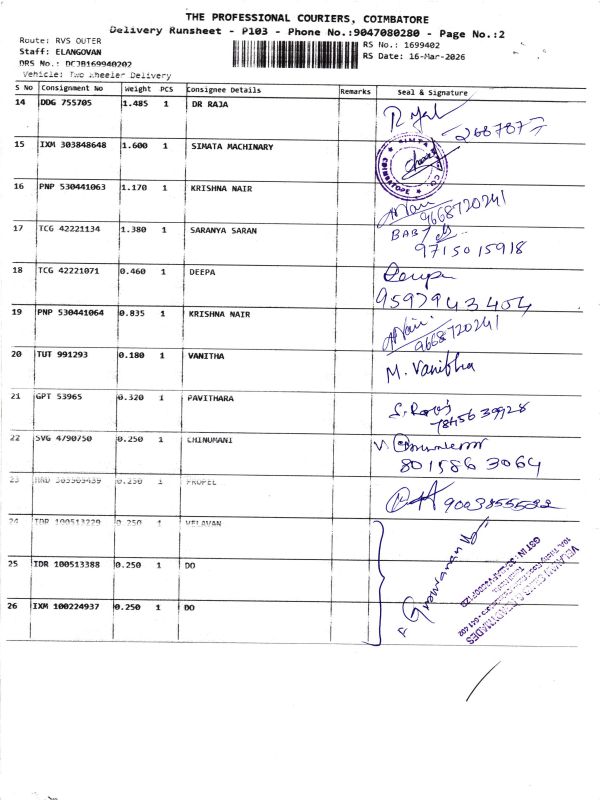 THE PROFESSIONAL COURIERS, COIMBATORE
Delivery Runsheet - P103 - Phone No.:9047080280 - Page No.:2
Route: RVS OUTER
RS No.: 1699402
Staff: ELANGOVAN
RS Date: 16-Mar-2026
DRS No.: DCJB169940202
Vehicle: Two Wheeler Delivery
S No Consignment No Weight PCS Consignee Details Remarks Seal & Signature
14 DDG 755705 1.485 1 DR RAJA
15 IXM 303848648 1.600 1 SIMATA MACHINARY
COIMBATORE
16 PNP 530441063 1.170 1 KRISHNA NAIR
9668720241
17 TCG 42221134 1.380 1 SARANYA SARAN
BABY
9715015918
18 TCG 42221071 0.460 1 DEEPA
Deepa
9597943404
19 PNP 530441064 0.835 1 KRISHNA NAIR
9668720241
20 TUT 991293 0.180 1 VANITHA
M. Vanitha
21 GPT 53965 0.320 1 PAVITHARA
7845639928
22 SVG 4790750 0.250 1 CHINUMANI
8015863064
23 0.250 1 PROPEL
24 IDR 100513229 0.250 1 VELAVAN
25 IDR 100513388 0.250 1 DO
26 IXM 100224937 0.250 1 DO